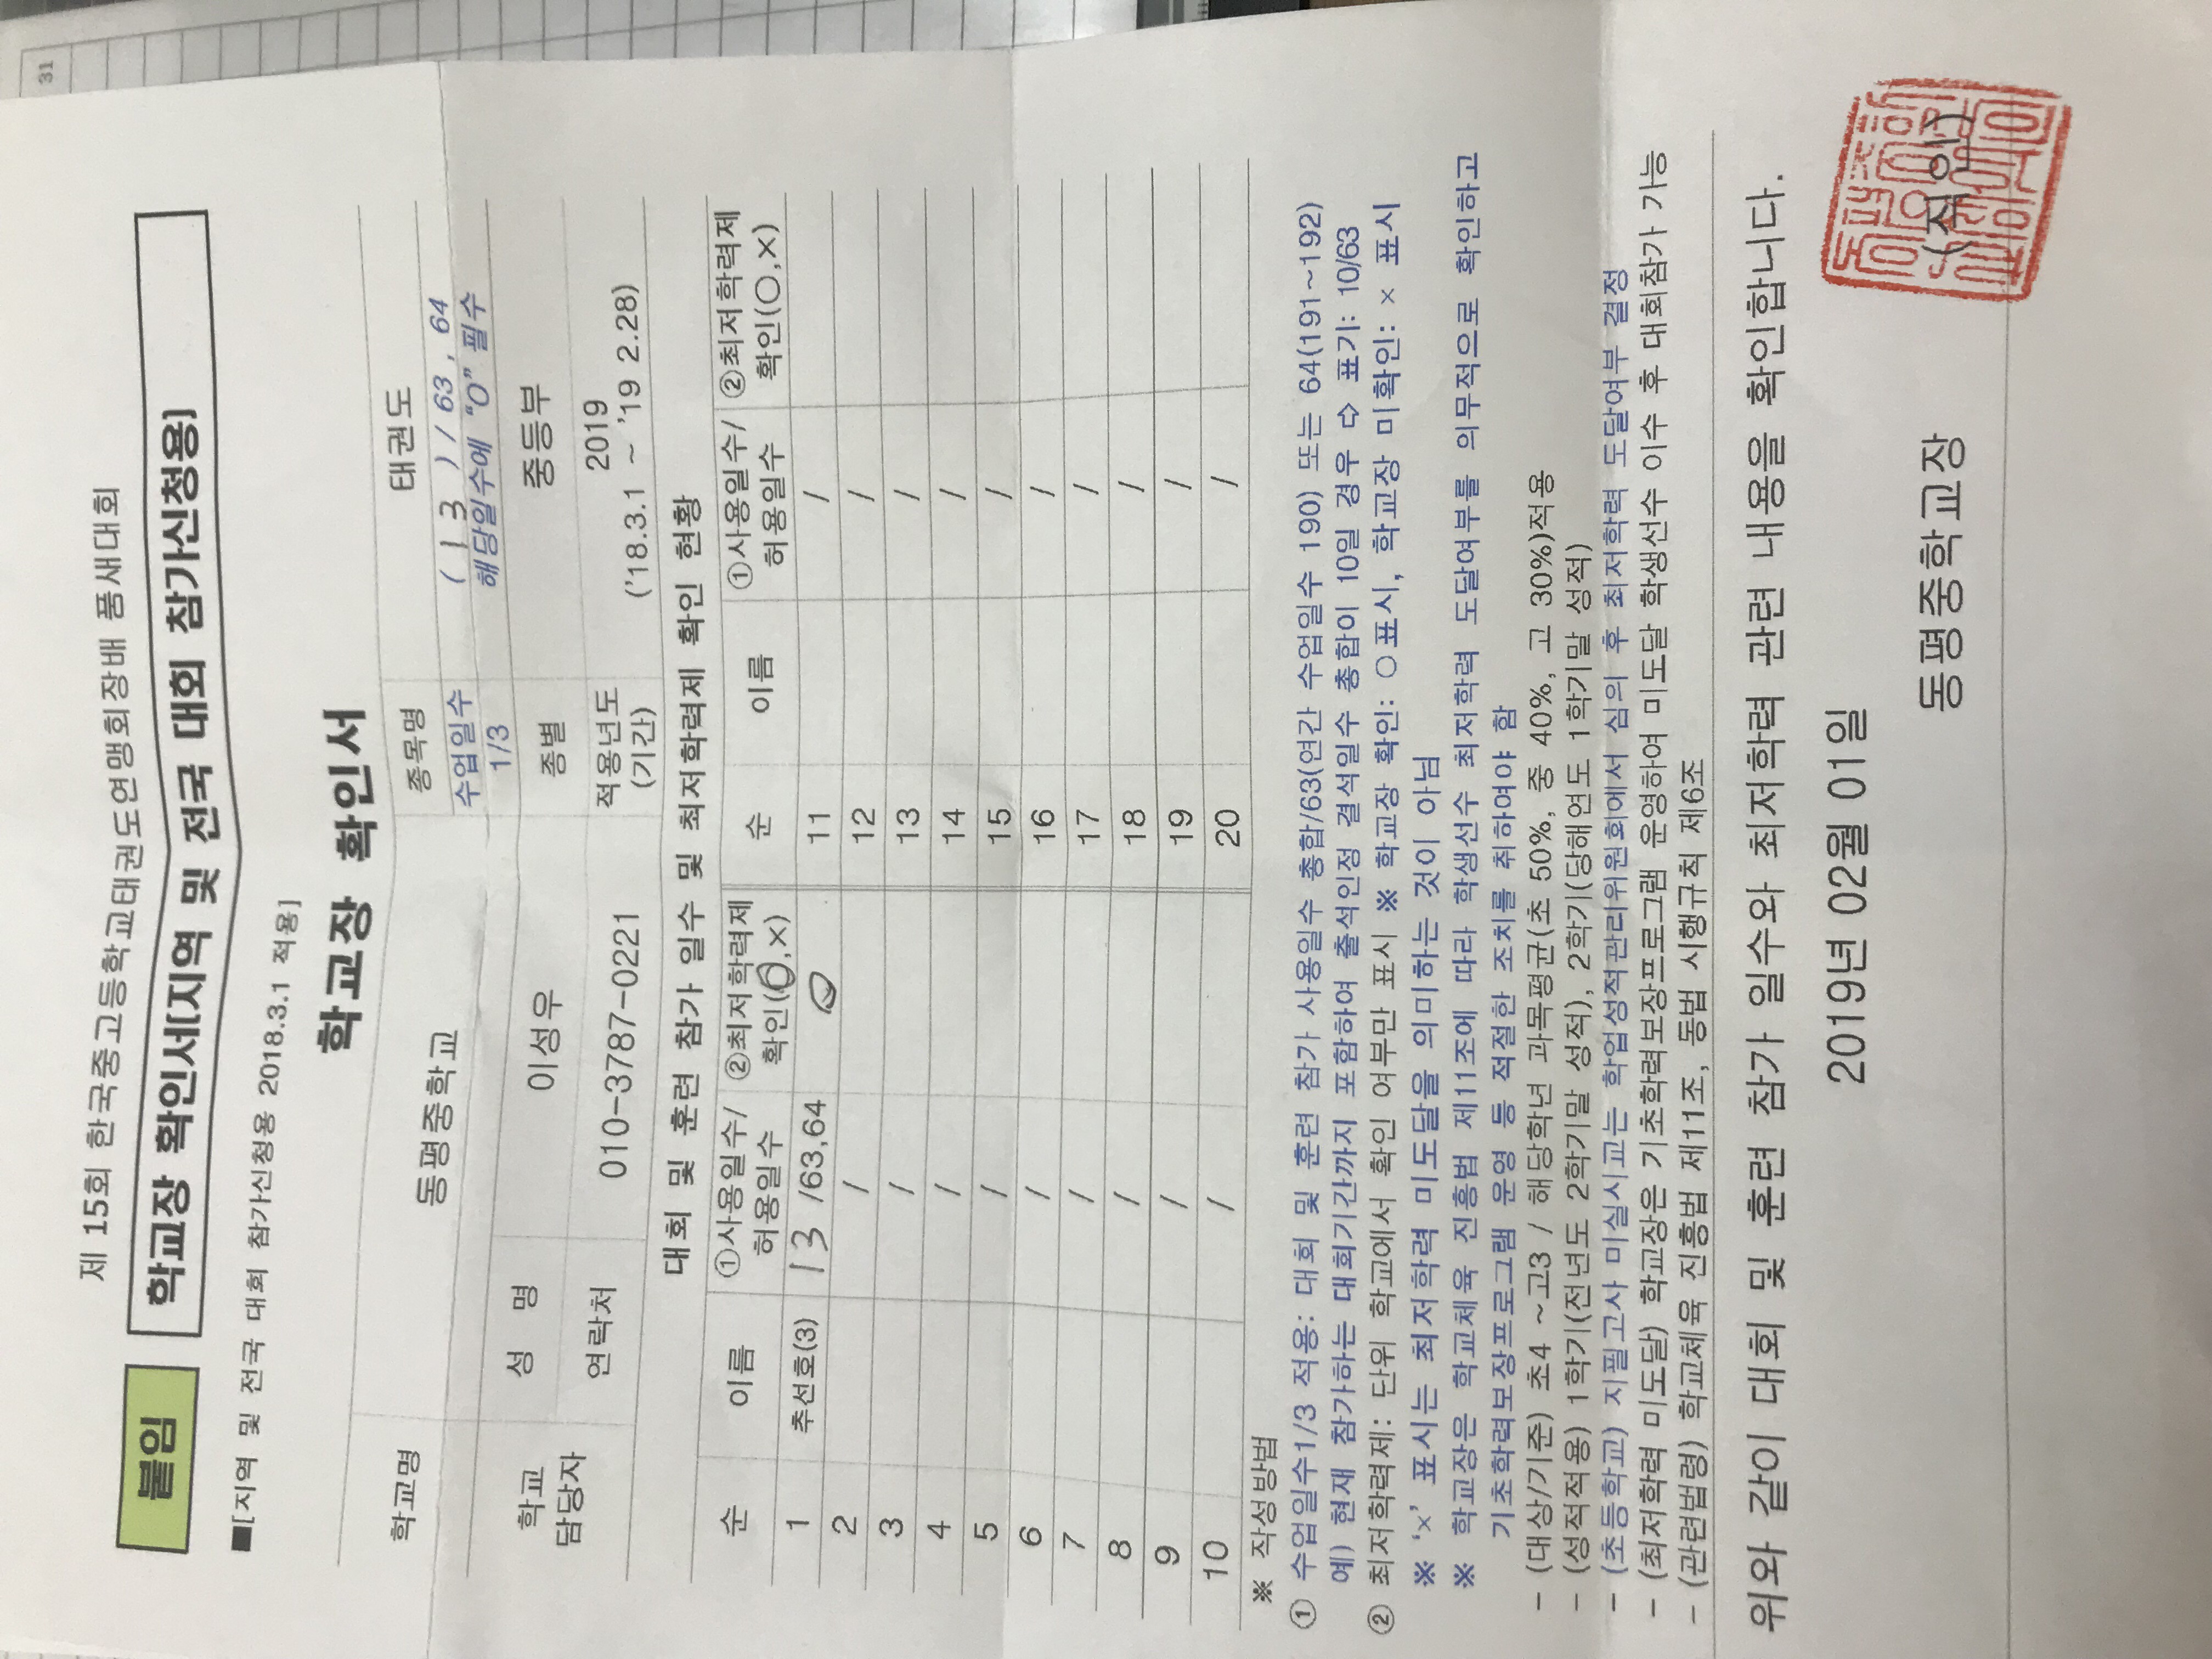 31
제 15회 한국중고등학교태권도연맹회장배 품새대회
붙임
학교장 확인서[지역 및 전국 대회 참가신청용]
■[지역 및 전국 대회 참가신청용 2018.3.1 적용]
학교장 확인서
학교명 동평중학교 종목명 태권도
수업일수 1/3 ( 13 ) / 63 , 64
해당일수에 "O" 필수
학교 담당자 성 명 이성우 종별 중등부
연락처 010-3787-0221 적용년도 (기간) 2019
('18.3.1 ~ '19 2.28)
대회 및 훈련 참가 일수 및 최저학력제 확인 현황
순 이름 ①사용일수/ 허용일수 ②최저학력제 확인(○,×) 순 이름 ①사용일수/ 허용일수 ②최저학력제 확인(○,×)
1 추선호(3) 13 /63,64 O 11 /
2 / 12 /
3 / 13 /
4 / 14 /
5 / 15 /
6 / 16 /
7 / 17 /
8 / 18 /
9 / 19 /
10 / 20 /
※ 작성방법
① 수업일수1/3 적용: 대회 및 훈련 참가 사용일수 총합/63(연간 수업일수 190) 또는 64(191~192)
예) 현재 참가하는 대회기간까지 포함하여 출석인정 결석일수 총합이 10일 경우 ⇨ 표기: 10/63
② 최저학력제: 단위 학교에서 확인 여부만 표시 ※ 학교장 확인: ○표시, 학교장 미확인: × 표시
※ '×' 표시는 최저학력 미도달을 의미하는 것이 아님
※ 학교장은 학교체육 진흥법 제11조에 따라 학생선수 최저학력 도달여부를 의무적으로 확인하고
기초학력보장프로그램 운영 등 적절한 조치를 취하여야 함
- (대상/기준) 초4 ~고3 / 해당학년 과목평균(초 50%, 중 40%, 고 30%)적용
- (성적적용) 1학기(전년도 2학기말 성적), 2학기(당해연도 1학기말 성적)
- (초등학교) 지필고사 미실시교는 학업성적관리위원회에서 심의 후 최저학력 도달여부 결정
- (최저학력 미도달) 학교장은 기초학력보장프로그램 운영하여 미도달 학생선수 이수 후 대회참가 가능
- (관련법령) 학교체육 진흥법 제11조, 동법 시행규칙 제6조
위와 같이 대회 및 훈련 참가 일수와 최저학력 관련 내용을 확인합니다.
2019년 02월 01일
동평중학교장 (직인)